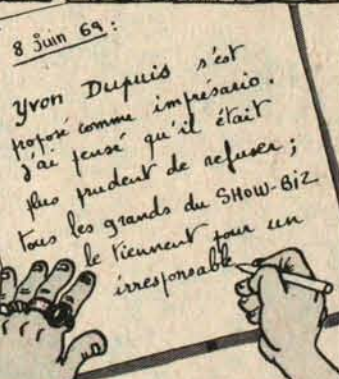 8 Juin 69 :
Yvon Dupuis s'est
proposé comme imprésario.
J'ai pensé qu'il était
plus prudent de refuser ;
tous les grands du SHOW-BIZ
le tiennent pour un
irresponsable